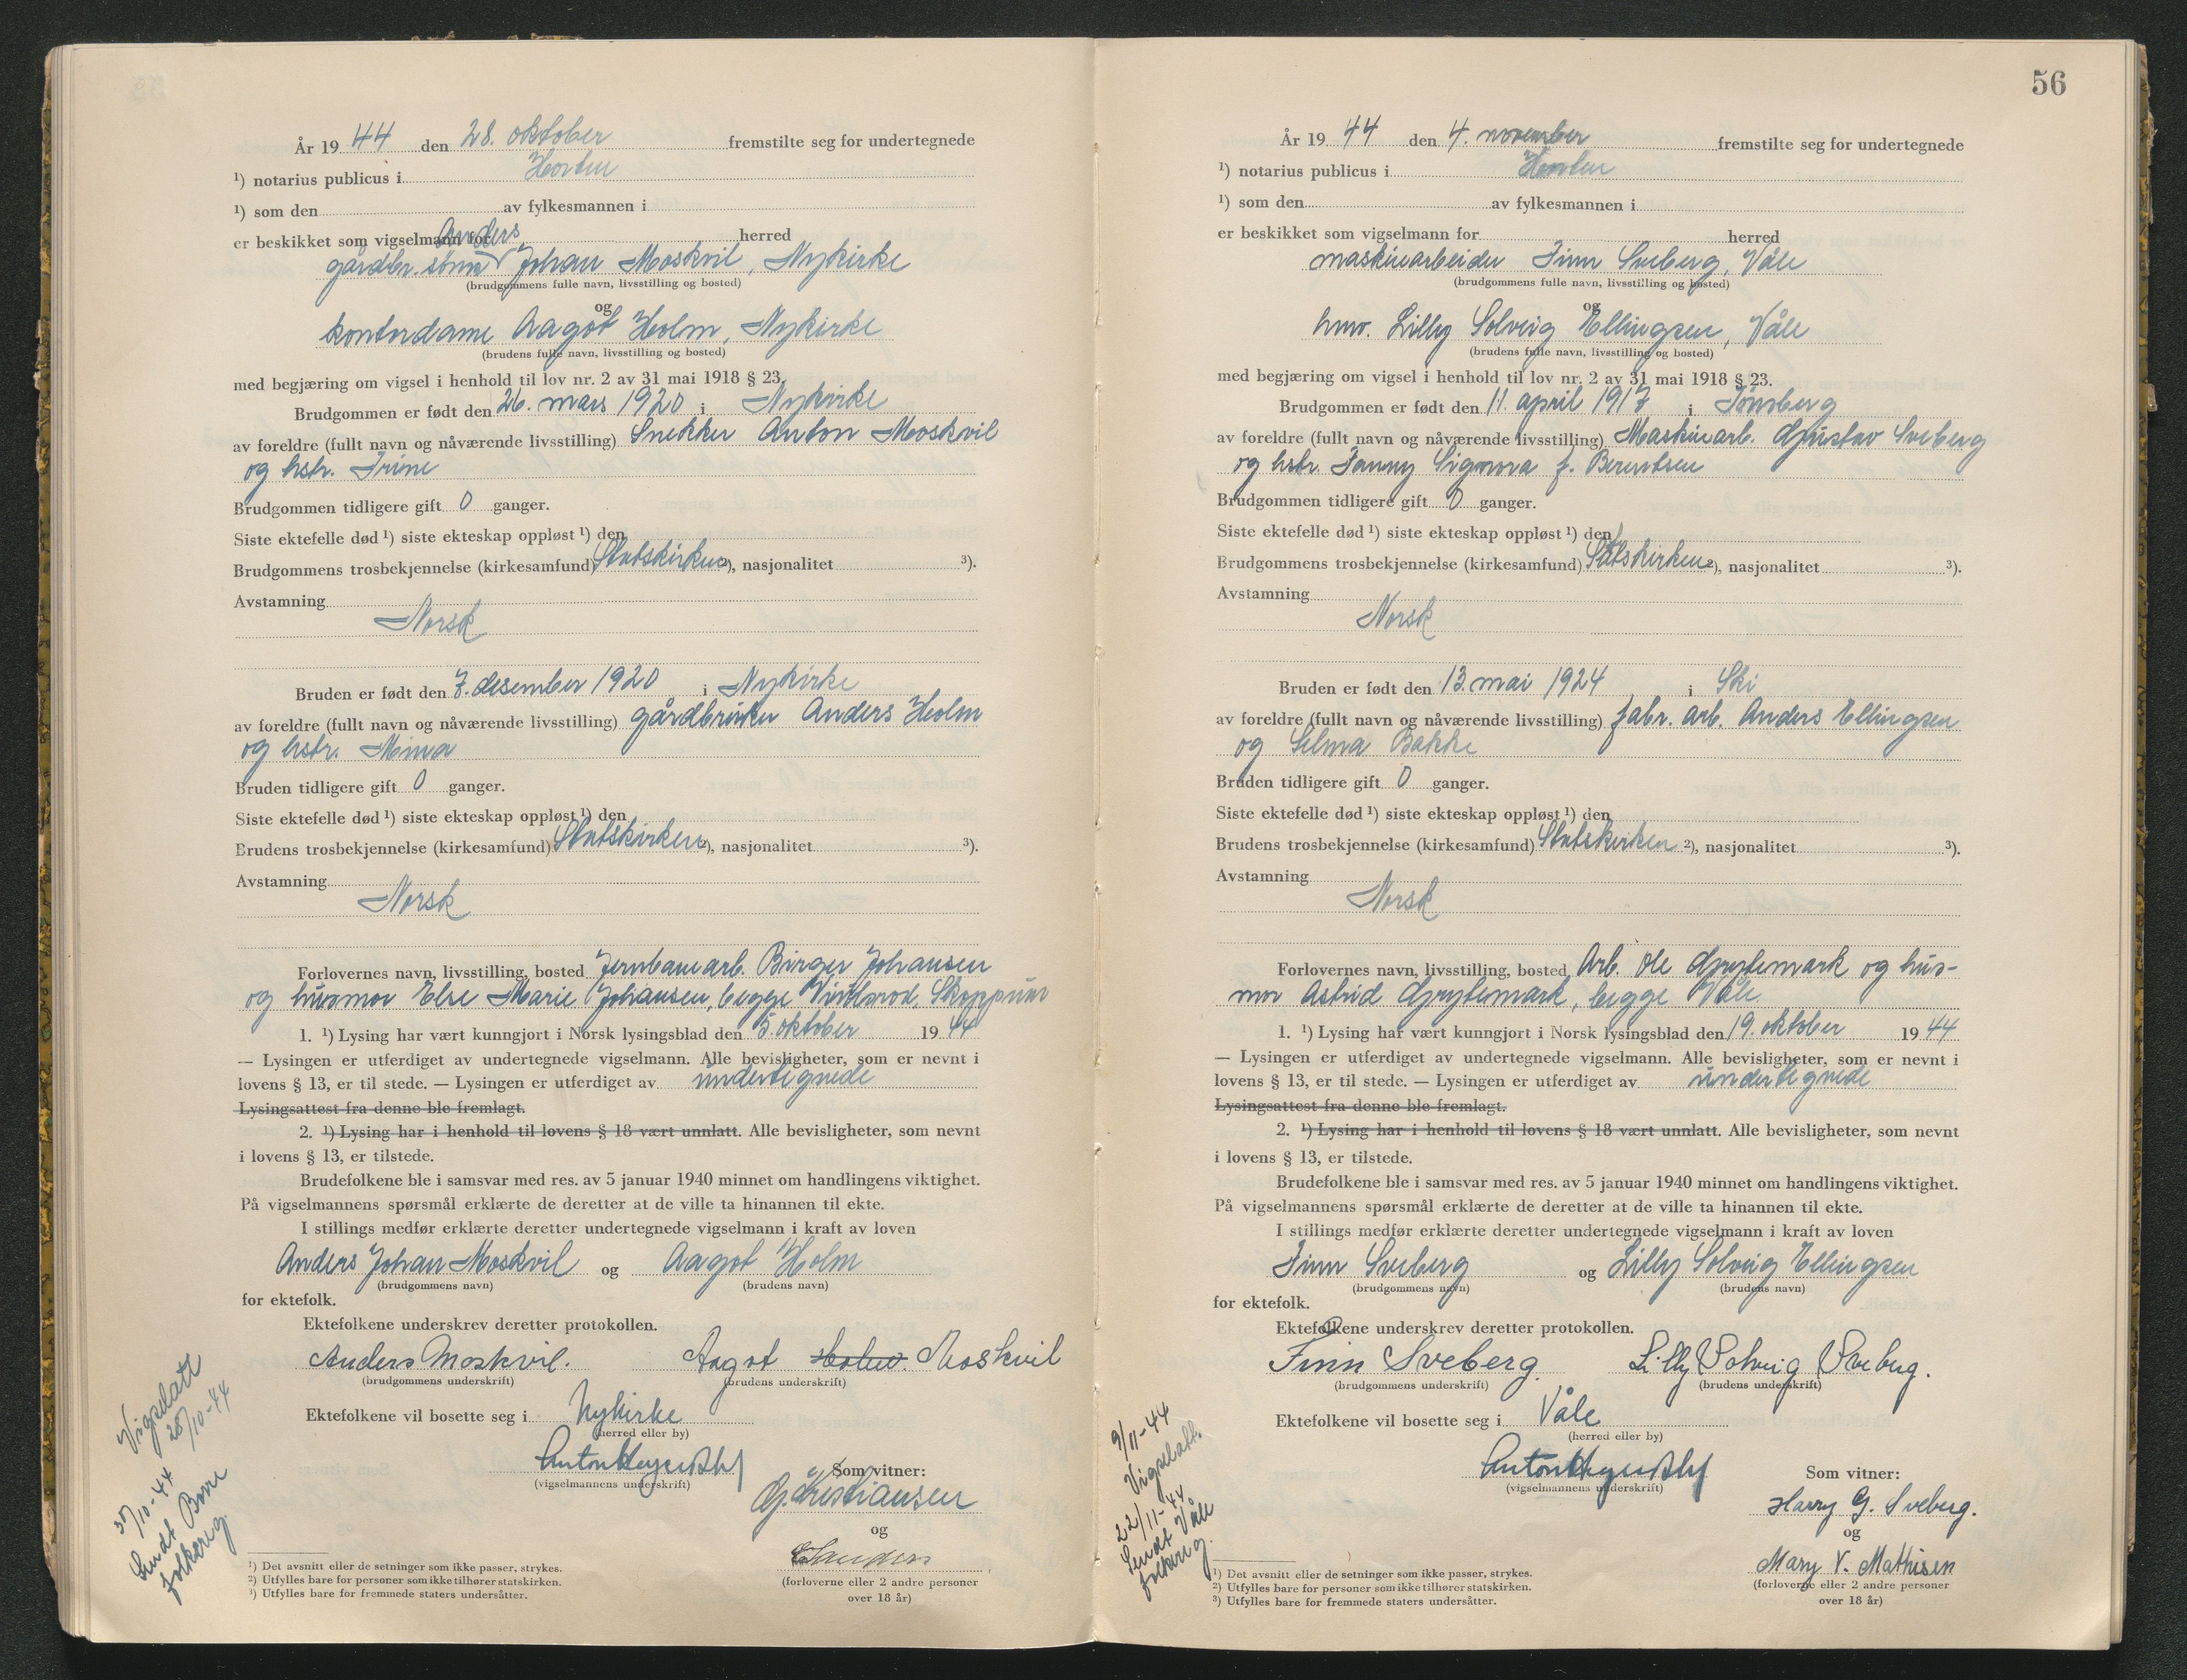 År 19 44 den 28. oktober fremstilte seg for undertegnede
¹) notarius publicus i Horten
¹) som den av fylkesmannen i
er beskikket som vigselmann for herred
Anders
gårdbr. sønn Johan Moskvil, Nykirke
(brudgommens fulle navn, livsstilling og bosted)
og
kontordame Aagot Holm, Nykirke
(brudens fulle navn, livsstilling og bosted)
med begjæring om vigsel i henhold til lov nr. 2 av 31 mai 1918 § 23.
Brudgommen er født den 26. mars 1920 i Nykirke
av foreldre (fullt navn og nåværende livsstilling) Snekker Anton Moskvil
og hstr. Trine
Brudgommen tidligere gift 0 ganger.
Siste ektefelle død ¹) siste ekteskap oppløst ¹) den
Brudgommens trosbekjennelse (kirkesamfund) Statskirken ²), nasjonalitet ³).
Avstamning
Norsk
Bruden er født den 7. desember 1920 i Nykirke
av foreldre (fullt navn og nåværende livsstilling) gårdbruker Anders Holm
og hstr. Mina
Bruden tidligere gift 0 ganger.
Siste ektefelle død ¹) siste ekteskap oppløst ¹) den
Brudens trosbekjennelse (kirkesamfund) Statskirken ²), nasjonalitet ³).
Avstamning
Norsk
Forlovernes navn, livsstilling, bosted Jernbanearb. Birger Johansen
og husmor Else Marie Johansen, begge Skoppum
1. ¹) Lysing har vært kunngjort i Norsk lysingsblad den 5. oktober 19 44
— Lysingen er utferdiget av undertegnede vigselmann. Alle bevisligheter, som er nevnt i
lovens § 13, er til stede. — Lysingen er utferdiget av undertegnede
Lysingsattest fra denne ble fremlagt.
2. ¹) Lysing har i henhold til lovens § 18 vært unnlatt. Alle bevisligheter, som nevnt
i lovens § 13, er tilstede.
Brudefolkene ble i samsvar med res. av 5 januar 1940 minnet om handlingens viktighet.
På vigselmannens spørsmål erklærte de deretter at de ville ta hinannen til ekte.
I stillings medfør erklærte deretter undertegnede vigselmann i kraft av loven
Anders Johan Moskvil og Aagot Holm
(brudgommens navn) (brudens navn)
for ektefolk.
Ektefolkene underskrev deretter protokollen.
Anders Moskvil. Aagot Holm. Moskvil
(brudgommens underskrift) (brudens underskrift)
Ektefolkene vil bosette seg i Nykirke
(herred eller by)
(vigselmannens underskrift)
Som vitner:
G. Kristiansen
og
(forloverne eller 2 andre personer
over 18 år)
Vigselatt
28/10-44
30/10-44
Sendt Borre
folkereg.
¹) Det avsnitt eller de setninger som ikke passer, strykes.
²) Utfylles bare for personer som ikke tilhører statskirken.
³) Utfylles bare for fremmede staters undersåtter.
56
År 19 44 den 4. november fremstilte seg for undertegnede
¹) notarius publicus i Horten
¹) som den av fylkesmannen i
er beskikket som vigselmann for herred
maskinarbeider Finn Sveberg, Våle
(brudgommens fulle navn, livsstilling og bosted)
og
hmv. Lilly Solveig Ellingsen, Våle
(brudens fulle navn, livsstilling og bosted)
med begjæring om vigsel i henhold til lov nr. 2 av 31 mai 1918 § 23.
Brudgommen er født den 11. april 1917 i Tønsberg
av foreldre (fullt navn og nåværende livsstilling) Maskinarb. Gustav Sveberg
og hstr. Fanny Signora f. Berentsen
Brudgommen tidligere gift 0 ganger.
Siste ektefelle død ¹) siste ekteskap oppløst ¹) den
Brudgommens trosbekjennelse (kirkesamfund) Statskirken ²), nasjonalitet ³).
Avstamning
Norsk
Bruden er født den 13. mai 1924 i Ski
av foreldre (fullt navn og nåværende livsstilling) fabr. arb. Anders Ellingsen
og Selma Bakke
Bruden tidligere gift 0 ganger.
Siste ektefelle død ¹) siste ekteskap oppløst ¹) den
Brudens trosbekjennelse (kirkesamfund) Statskirken ²), nasjonalitet ³).
Avstamning
Norsk
Forlovernes navn, livsstilling, bosted Arb. Ole Grytemark og hus-
mor Astrid Grytemark, begge Våle
1. ¹) Lysing har vært kunngjort i Norsk lysingsblad den 19. oktober 19 44
— Lysingen er utferdiget av undertegnede vigselmann. Alle bevisligheter, som er nevnt i
lovens § 13, er til stede. — Lysingen er utferdiget av undertegnede
Lysingsattest fra denne ble fremlagt.
2. ¹) Lysing har i henhold til lovens § 18 vært unnlatt. Alle bevisligheter, som nevnt
i lovens § 13, er tilstede.
Brudefolkene ble i samsvar med res. av 5 januar 1940 minnet om handlingens viktighet.
På vigselmannens spørsmål erklærte de deretter at de ville ta hinannen til ekte.
I stillings medfør erklærte deretter undertegnede vigselmann i kraft av loven
Finn Sveberg og Lilly Solveig Ellingsen
(brudgommens navn) (brudens navn)
for ektefolk.
Ektefolkene underskrev deretter protokollen.
Finn Sveberg. Lilly Solveig Sveberg.
(brudgommens underskrift) (brudens underskrift)
Ektefolkene vil bosette seg i Våle
(herred eller by)
(vigselmannens underskrift)
Som vitner:
Harry G. Sveberg.
og
Mary V. Mathisen
(forloverne eller 2 andre personer
over 18 år)
9/11-44
Vigselatt.
22/11-44
Sendt Våle
folkereg.
¹) Det avsnitt eller de setninger som ikke passer, strykes.
²) Utfylles bare for personer som ikke tilhører statskirken.
³) Utfylles bare for fremmede staters undersåtter.